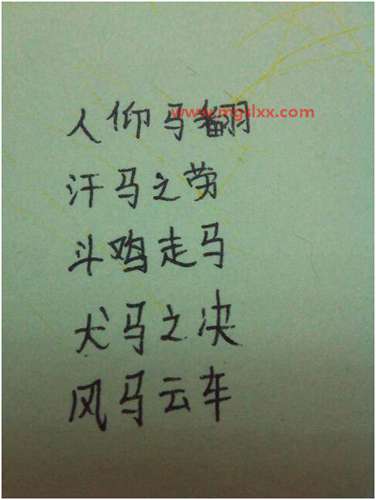 www.mgslxx.com
人仰马翻
汗马之劳
斗鸡走马
犬马之决
风马云车